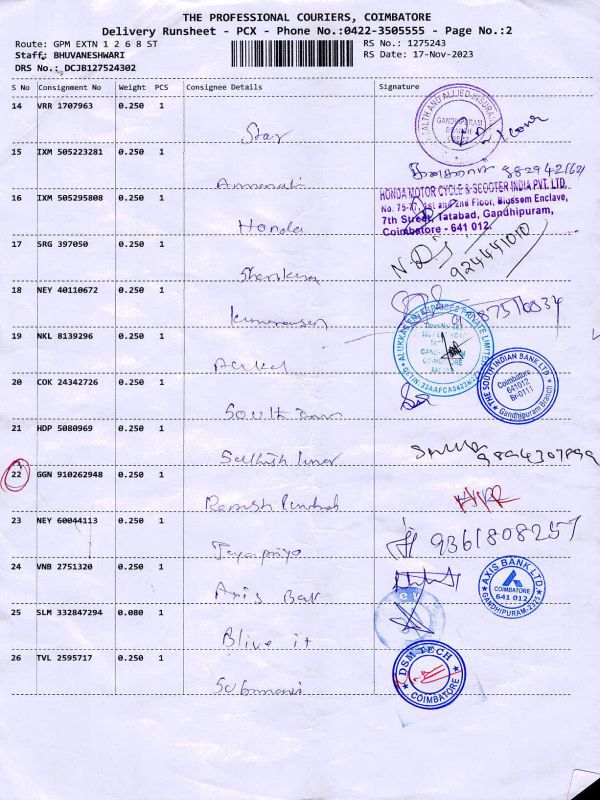 THE PROFESSIONAL COURIERS, COIMBATORE
Delivery Runsheet - PCX - Phone No.:0422-3505555 - Page No.:2
Route: GPM EXTN 1 2 6 8 ST
RS No.: 1275243
Staff: BHUVANESHWARI
RS Date: 17-Nov-2023
DRS No.: DCJB127524302
S No Consignment No Weight PCS Consignee Details Signature
14 VRR 1707963 0.250 1
Star
HEALTH AND ALLIED INSURANCE
GANDHIPURAM
BRANCH
15 IXM 505223281 0.250 1
Annamalai
16 IXM 505295808 0.250 1
Honda
HONDA MOTOR CYCLE & SCOOTER INDIA PVT. LTD.
No. 75-77, 1st and 2nd Floor, Blossem Enclave,
7th Street, Tatabad, Gandhipuram,
Coimbatore - 641 012.
17 SRG 397050 0.250 1
924441010
18 NEY 40110672 0.250 1
19 NKL 8139296 0.250 1
ALUKKAS ENTERPRISES PRIVATE LIMITED
COIMBATORE
20 COK 24342726 0.250 1
South
THE SOUTH INDIAN BANK LTD
Coimbatore
641012
Br-0111
Gandhipuram Branch
21 HDP 5080969 0.250 1
Sathish Kumar
9894307899
22 GGN 910262948 0.250 1
Ramesh
23 NEY 60044113 0.250 1
Jayapriya
9361808257
24 VNB 2751320 0.250 1
Axis Bank
AXIS BANK LTD
COIMBATORE
641 012
GANDHIPURAM
25 SLM 332847294 0.080 1
Blive it
26 TVL 2595717 0.250 1
DSM TECH
COIMBATORE